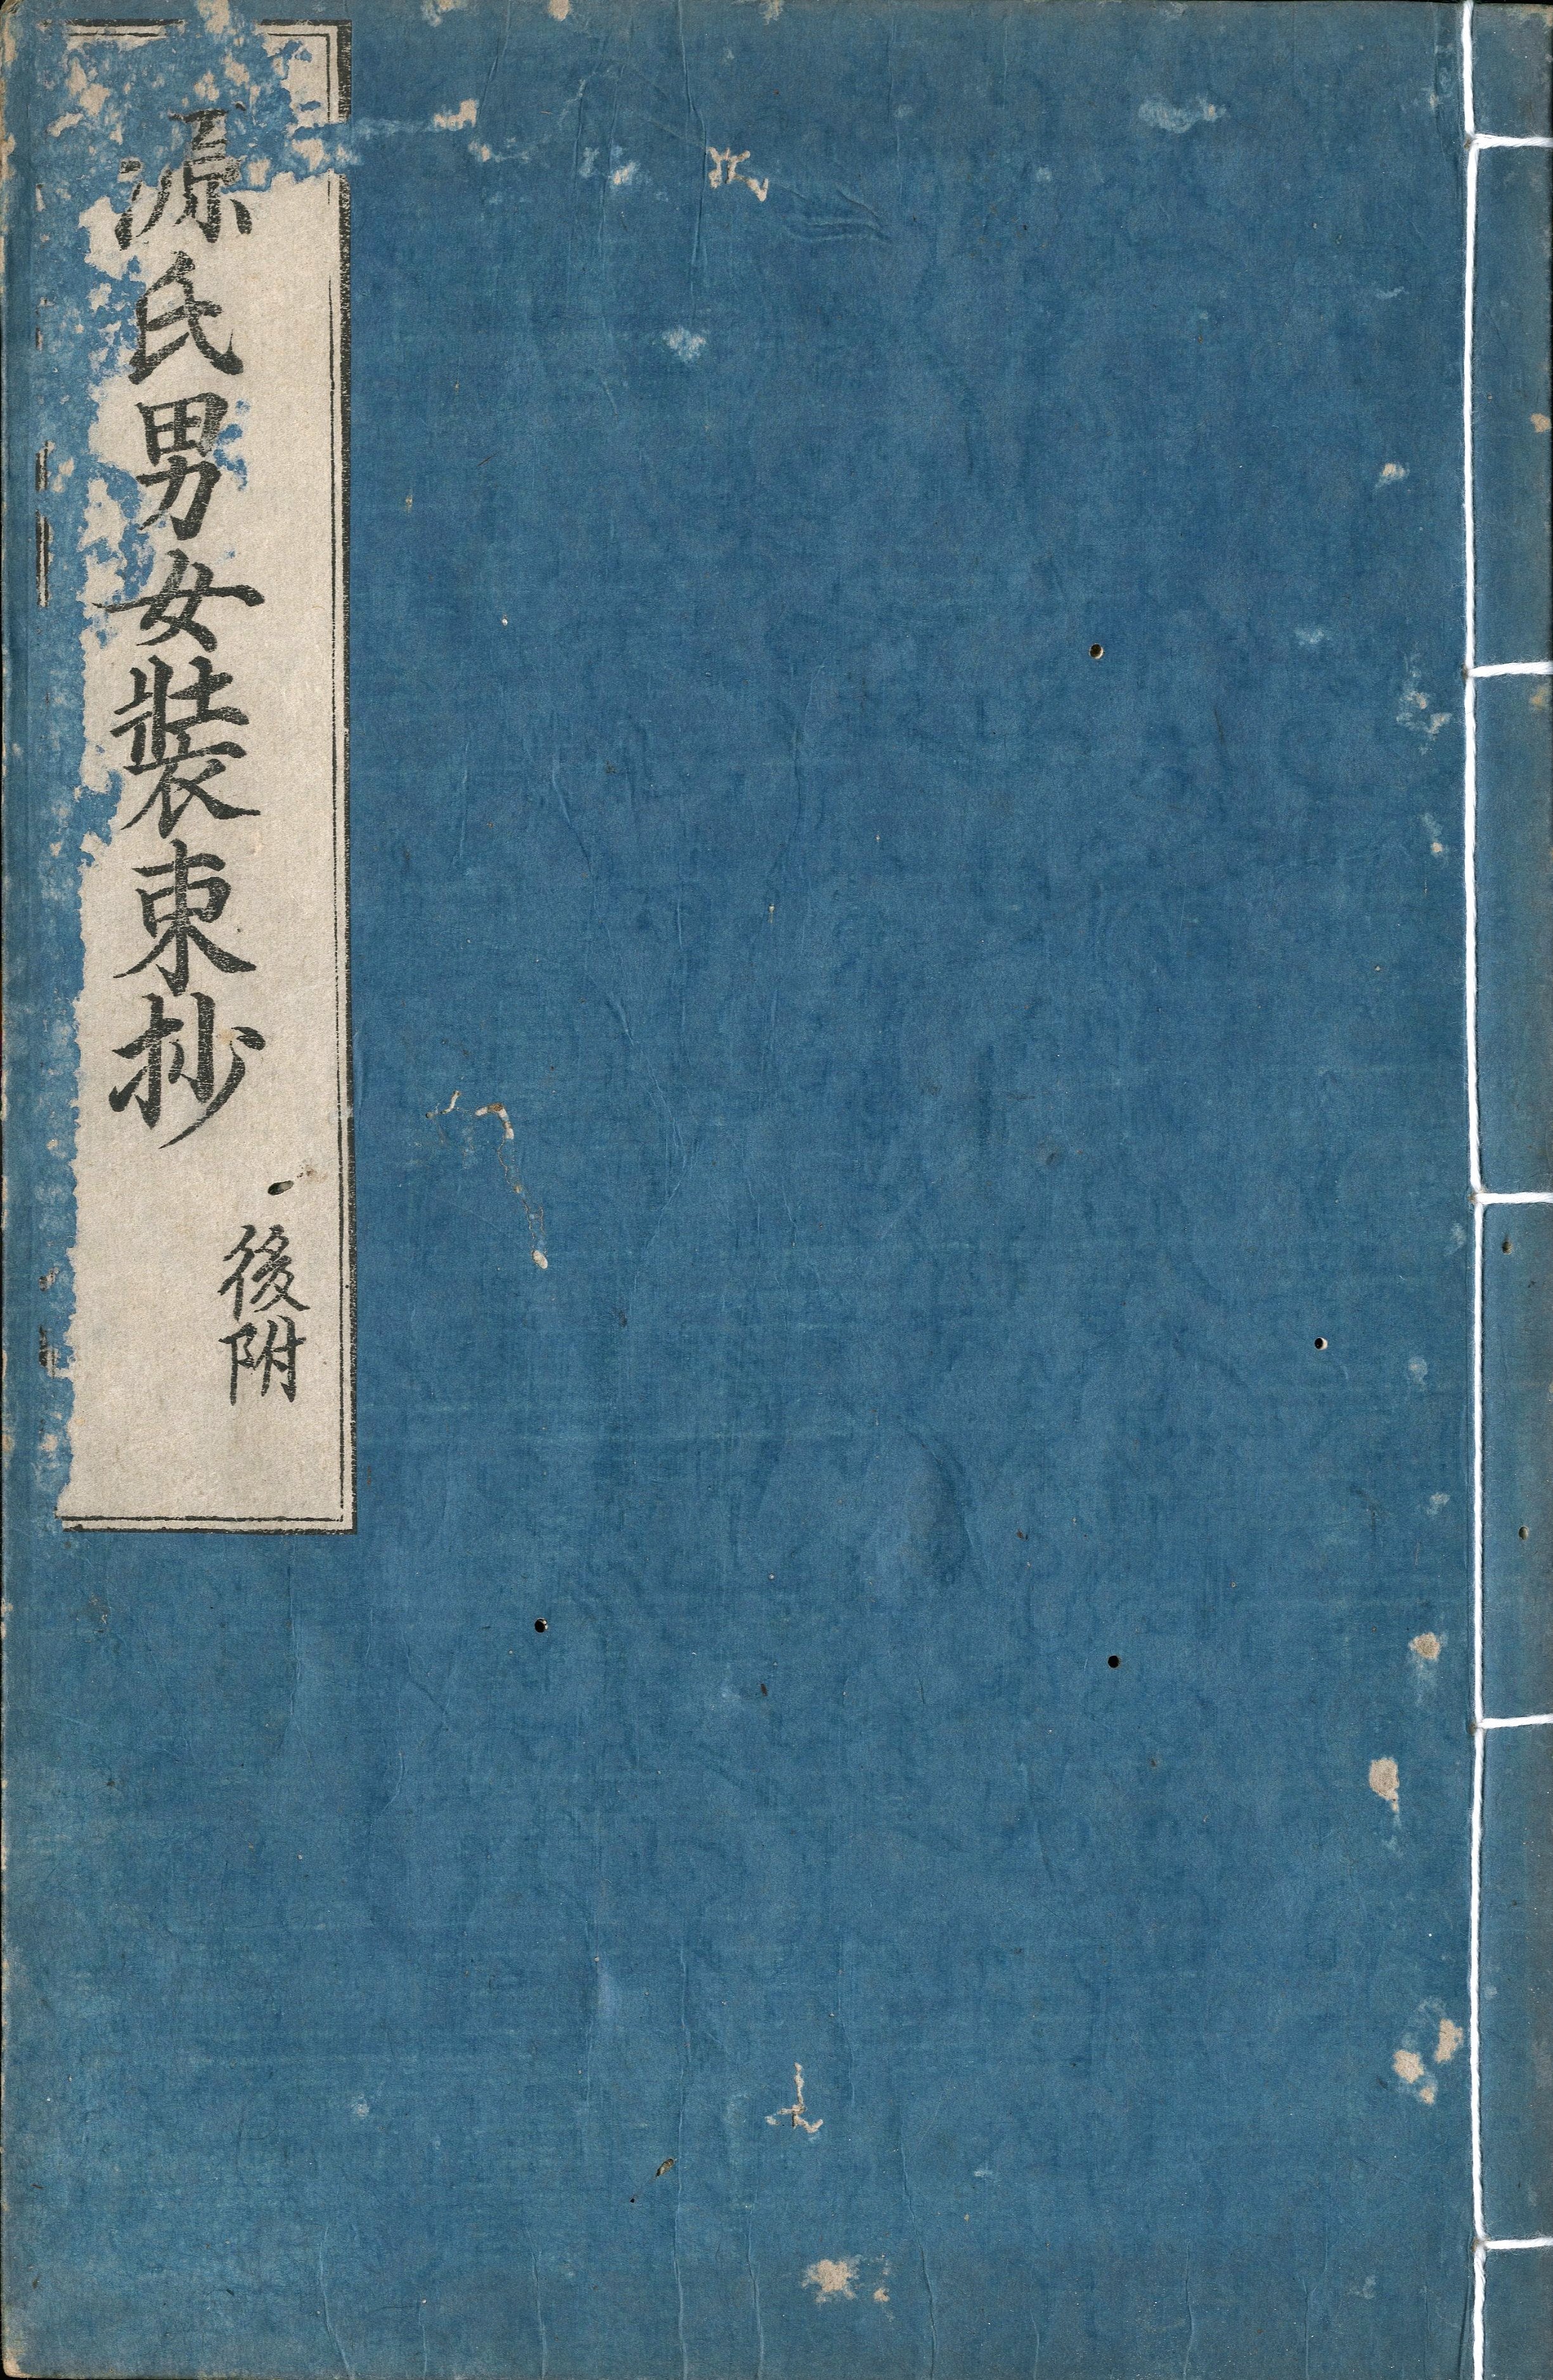 源氏男女装束抄
後附